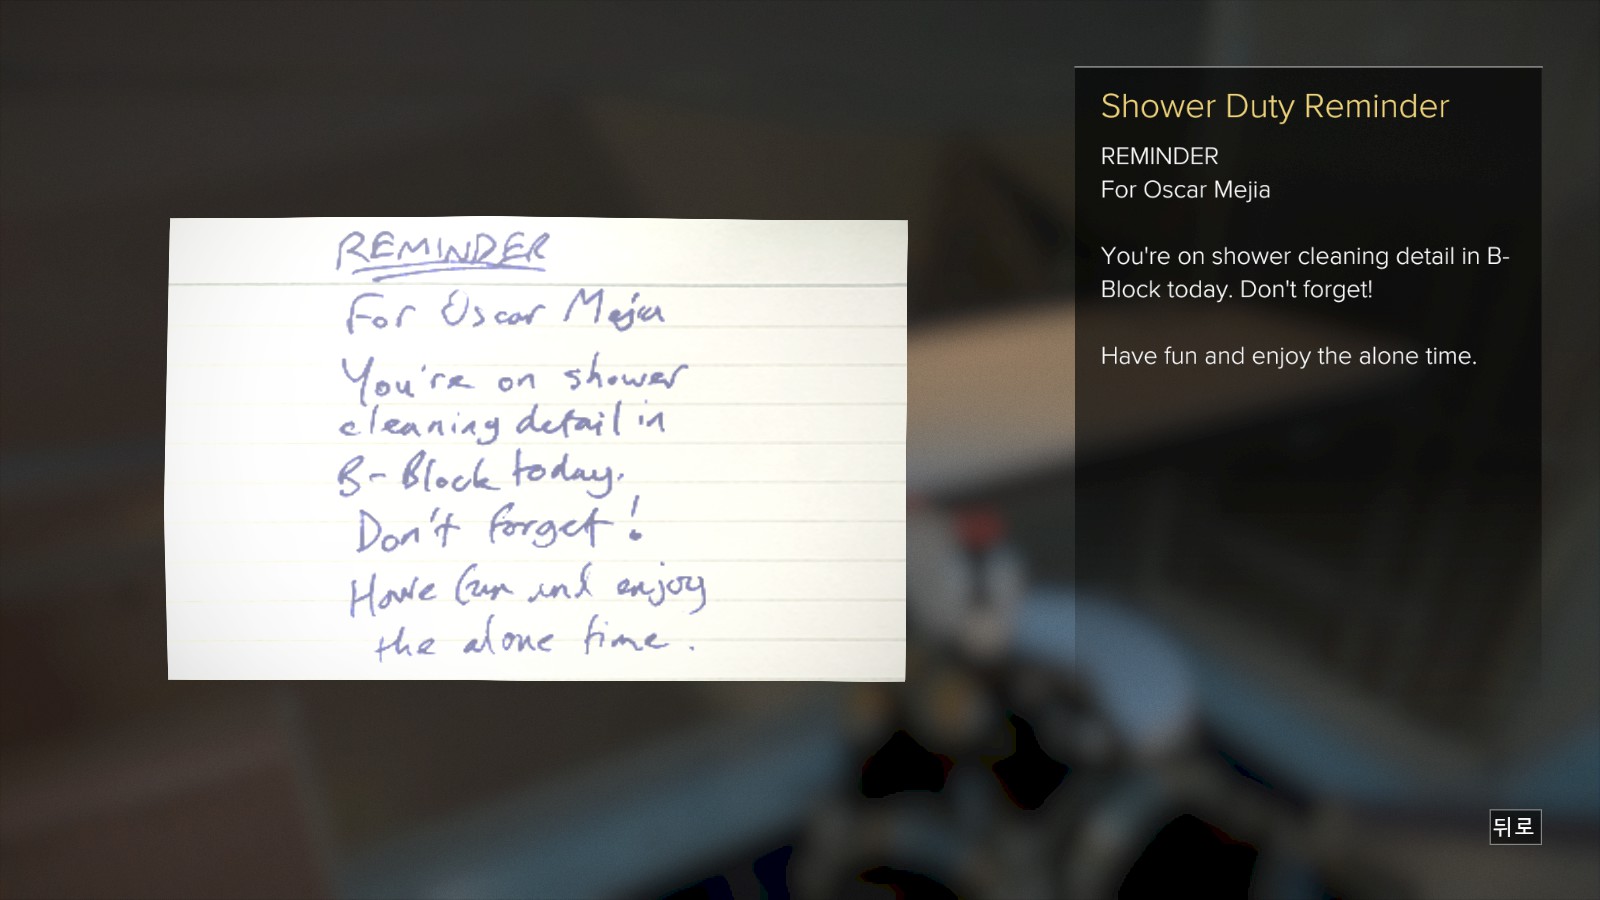 REMINDER
For Oscar Mejia
You're on shower
cleaning detail in
B-Block today.
Don't forget!
Have fun and enjoy
the alone time.
Shower Duty Reminder
REMINDER
For Oscar Mejia
You're on shower cleaning detail in B-
Block today. Don't forget!
Have fun and enjoy the alone time.
뒤로